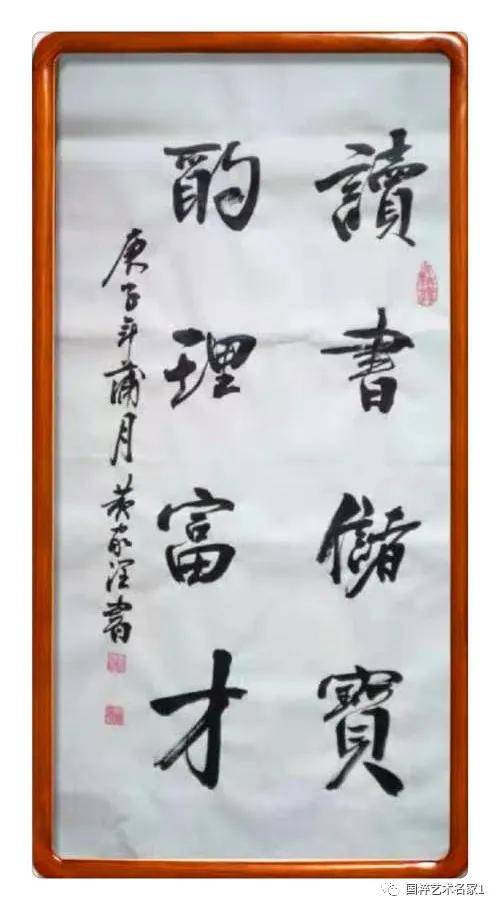 讀書儲寶
酌理富才
庚子年蒲月 黄家 書
国粹艺术名家1